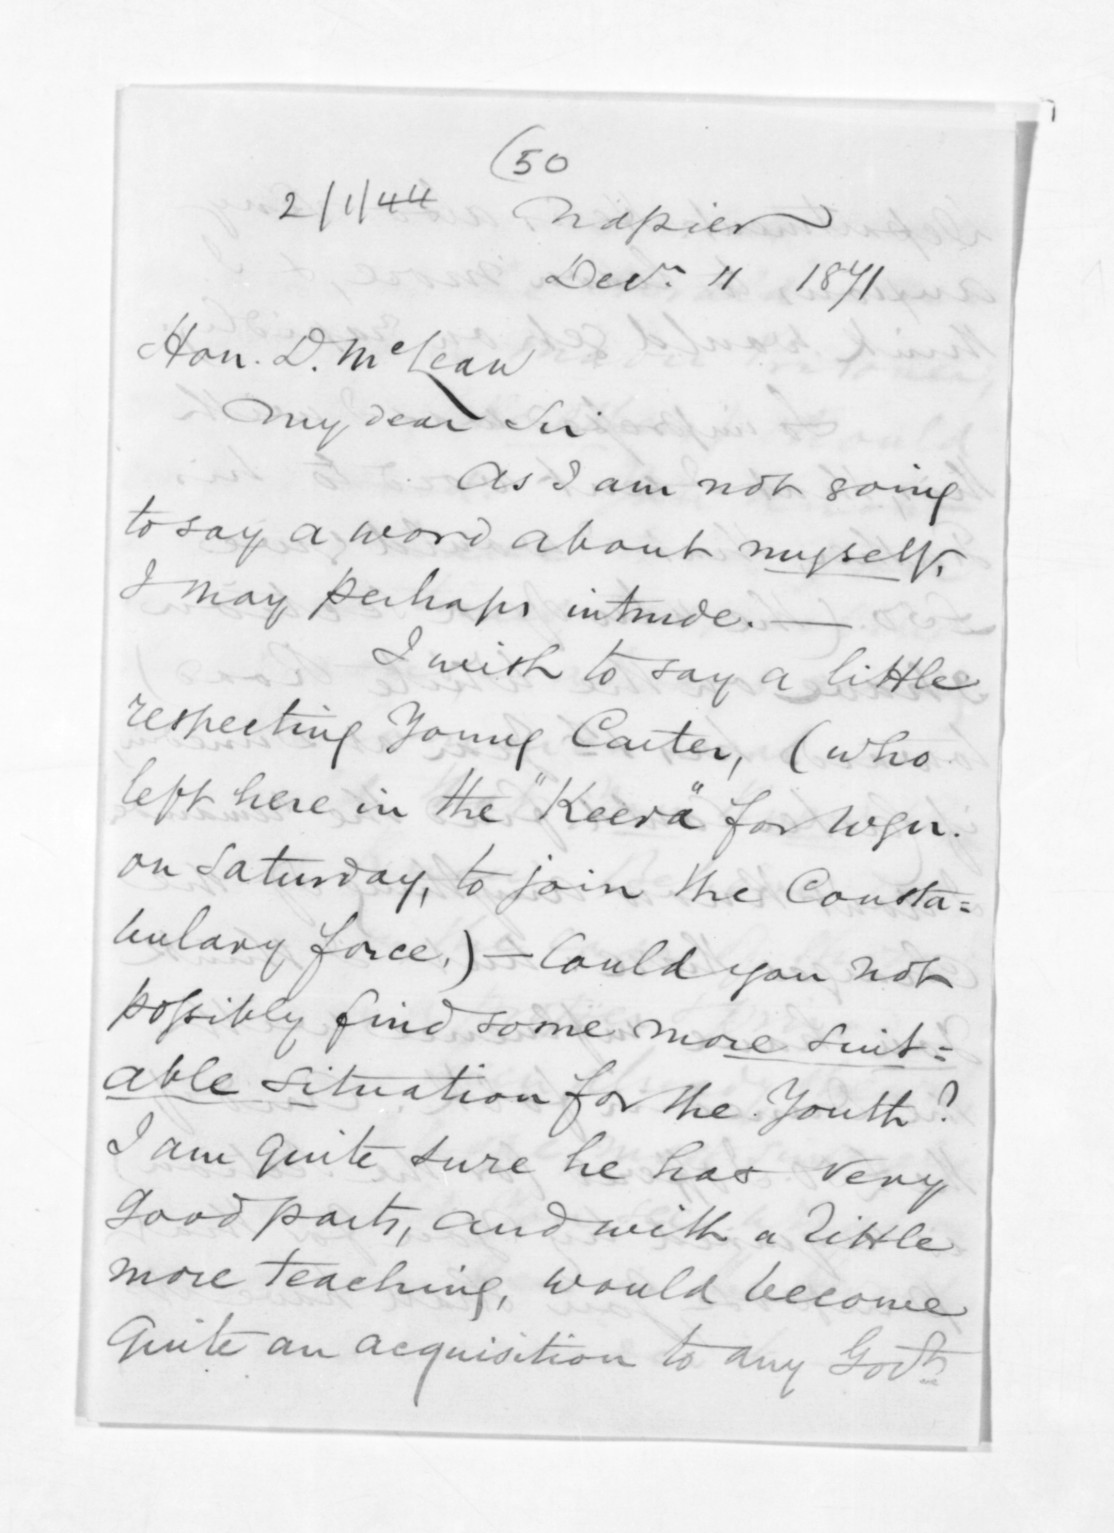 (50
2/1/44
Napier
Decr. 11 1871
Hon. D. McLean
My dear Sir
As I am not going
to say a word about myself,
I may perhaps intrude. —
I wish to say a little
respecting Young Carter, (who
left here in the "Keera" for Wgn.
on Saturday, to join the Consta=
bulary force.) — Could you not
possibly find some more suit=
able situation for the Youth?
I am quite sure he has very
good parts, and with a little
more teaching, would become
quite an acquisition to any Govt.